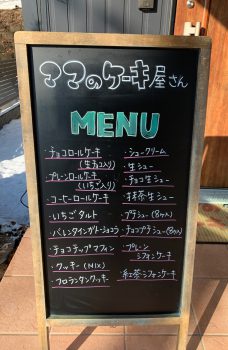 ママのケーキ屋さん
MENU
・チョコロールケーキ
(生チョコ入り)
・プレーンロールケーキ
(いちご入り)
・コーヒーロールケーキ
・いちごタルト
・バレンタインガトーショコラ
・チョコチップマフィン
・クッキー(MIX)
・フロランタンクッキー
・シュークリーム
・生シュー
・チョコ生シュー
・抹茶生シュー
・プチシュー(8コ入)
・チョコプチシュー(8コ入)
・プレーン
シフォンケーキ
・紅茶シフォンケーキ